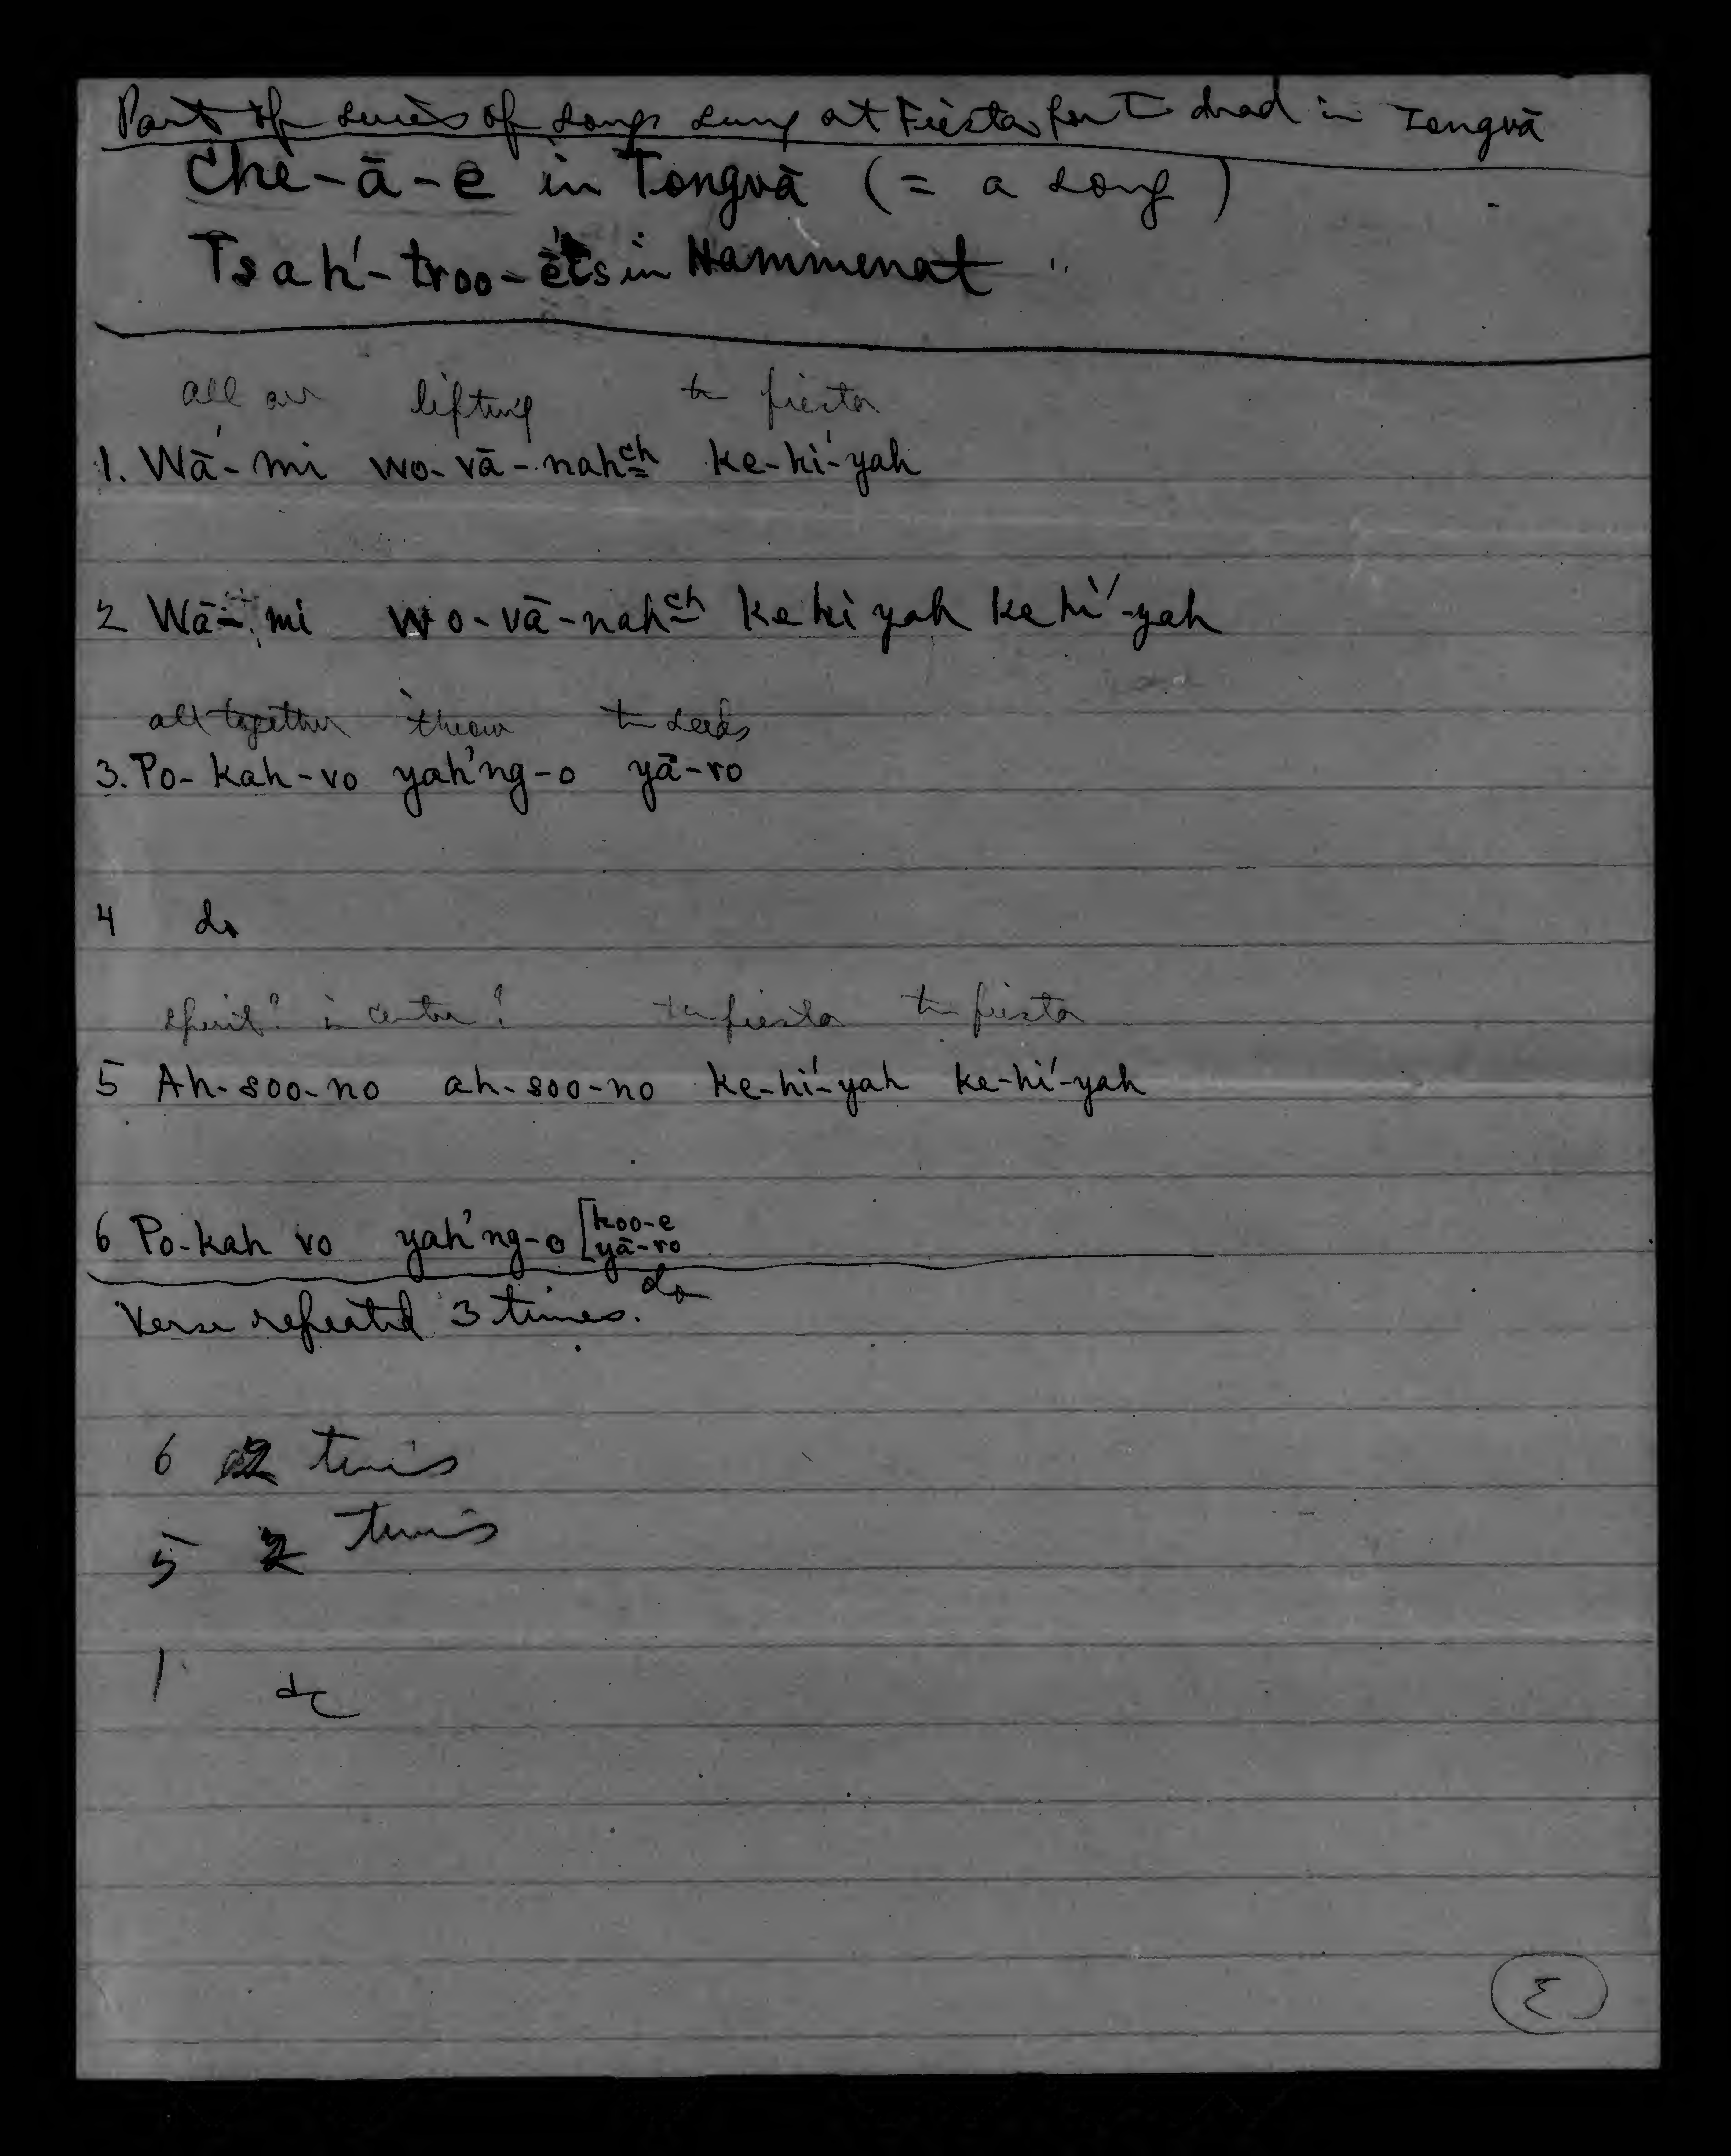 Part of series of songs sung at Fiesta for the dead in Tongvā
Che-ā-e in Tongvā (= a song)
Tsah'-troo-ets in Hammenat "
all are lifting the fiesta
1. Wā-mi wo-vā-nahch ke-hi'-yah
2 Wā-mi wo-vā-nahch ke hi yah ke hi'-yah
all together throw the seeds
3. Po-kah-vo yah'ng-o yā-ro
4 do
spirit? in center? the fiesta the fiesta
5 Ah-soo-no ah-soo-no ke-hi'-yah ke-hi'-yah
6 Po-kah vo yah'ng-o [koo-e
yā-ro
do
Verse repeated 3 times.
6 2 times
5 2 times
1 do